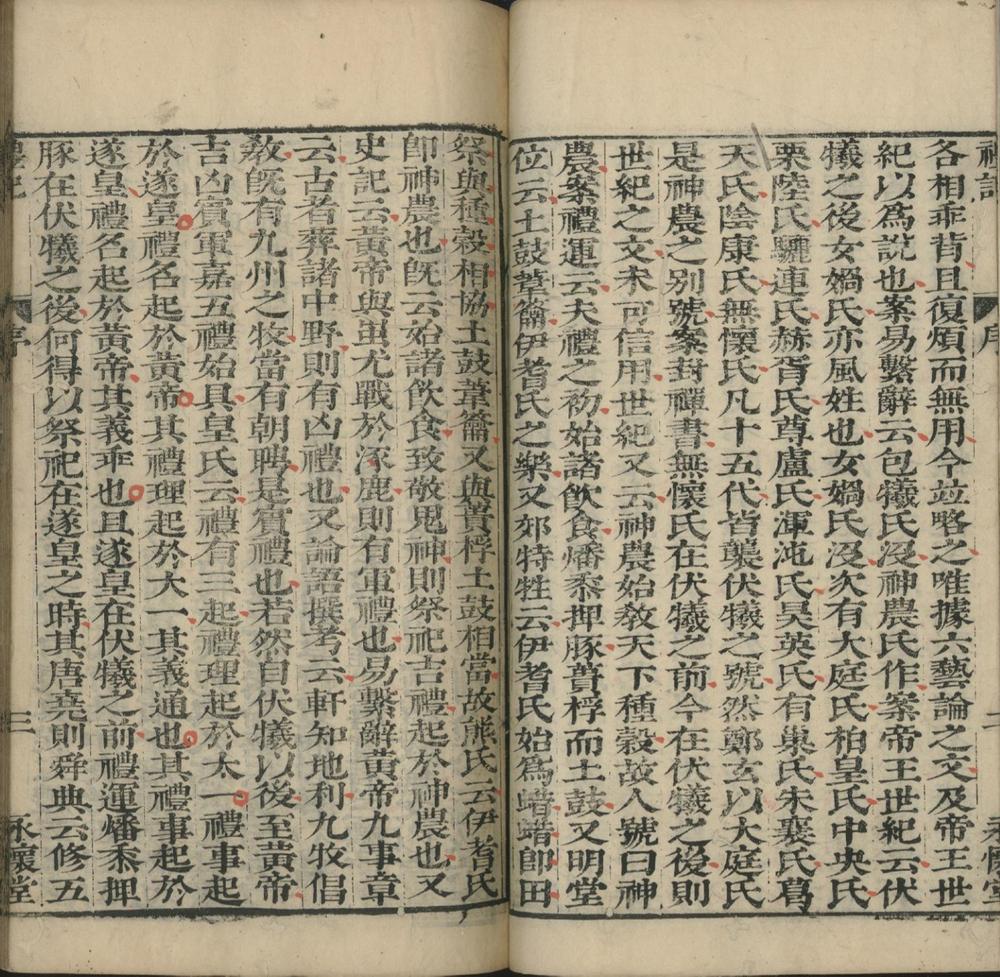 禮記
序
二
永懷堂
各相乖背且復煩而無用今竝略之唯據六藝論之文及帝王世
紀以爲說也案易繫辭云包犧氏沒神農氏作案帝王世紀云伏
犧之後女媧氏亦風姓也女媧氏沒次有大庭氏柏皇氏中央氏
栗陸氏驪連氏赫胥氏尊盧氏渾沌氏昊英氏有巢氏朱襄氏葛
天氏陰康氏無懷氏凡十五代皆襲伏犧之號然鄭玄以大庭氏
是神農之別號案封禪書無懷氏在伏犧之前今在伏犧之後則
世紀之文未可信用世紀又云神農始敎天下種穀故人號曰神
農案禮運云夫禮之初始諸飮食燔黍捭豚蕢桴而土鼓又明堂
位云土鼓葦籥伊耆氏之樂又郊特牲云伊耆氏始爲蜡蜡卽田
祭與種穀相協土鼓葦籥又與蕢桴土鼓相當故熊氏云伊耆氏
卽神農也旣云始諸飮食致敬鬼神則祭祀吉禮起於神農也又
史記云黃帝與蚩尤戰於涿鹿則有軍禮也易繫辭黃帝九事章
云古者葬諸中野則有凶禮也又論語撰考云軒知地利九牧倡
敎旣有九州之牧當有朝聘是賓禮也若然自伏犧以後至黃帝
吉凶賓軍嘉五禮始具皇氏云禮有三起禮理起於太一禮事起
於遂皇禮名起於黃帝其禮理起於大一其義通也其禮事起於
遂皇禮名起於黃帝其義乖也且遂皇在伏犧之前禮運燔黍捭
豚在伏犧之後何得以祭祀在遂皇之時其唐堯則舜典云修五
禮記
序
三
永懷堂